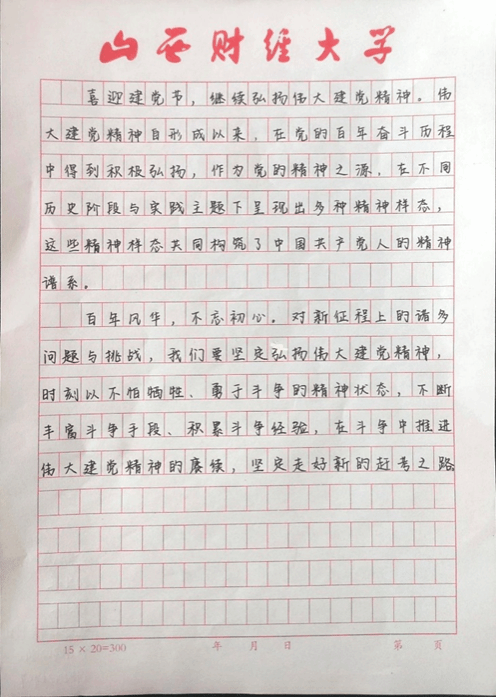 山西财经大学
喜迎建党节，继续弘扬伟大建党精神。伟
大建党精神自形成以来，在党的百年奋斗历程
中得到积极弘扬，作为党的精神之源，在不同
历史阶段与实践主题下呈现出多种精神样态，
这些精神样态共同构筑了中国共产党人的精神
谱系。
百年风华，不忘初心。对新征程上的诸多
问题与挑战，我们要坚定弘扬伟大建党精神，
时刻以不怕牺牲、勇于斗争的精神状态，不断
丰富斗争手段、积累斗争经验，在斗争中推进
伟大建党精神的赓续，坚定走好新的赶考之路
15×20=300 年 月 日 第 页